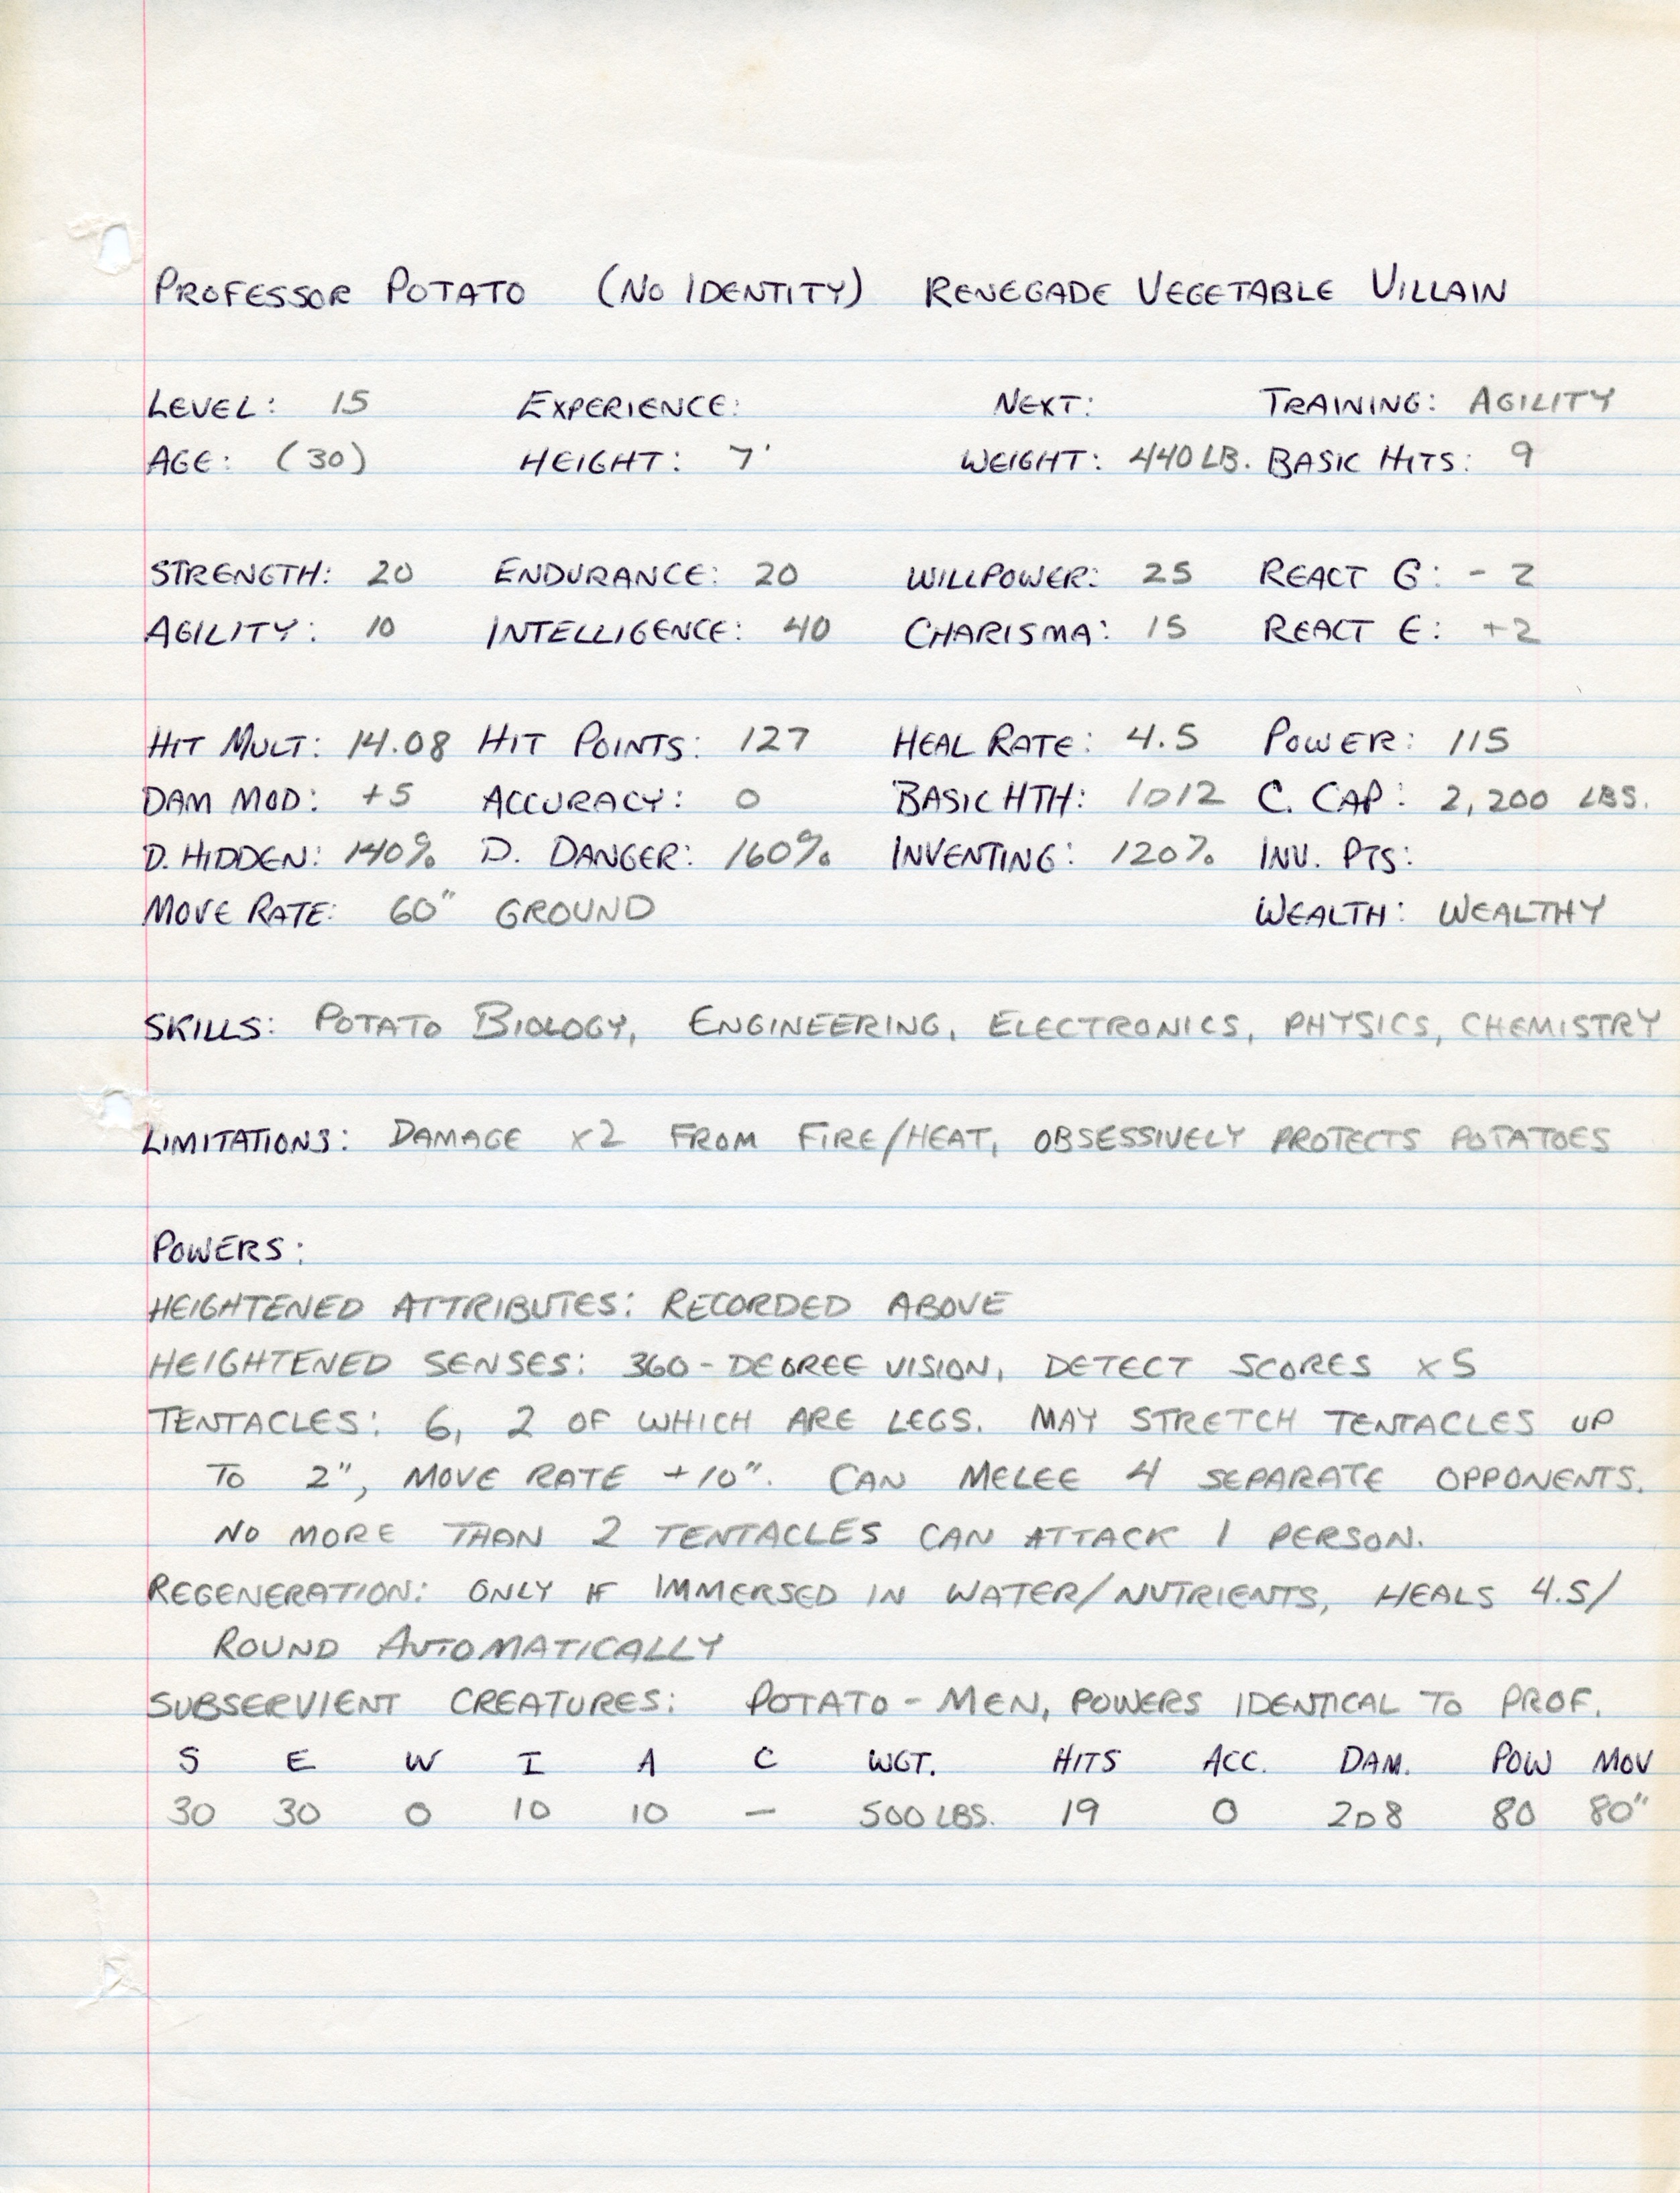 PROFESSOR POTATO (NO IDENTITY) RENEGADE VEGETABLE VILLAIN
LEVEL: 15 EXPERIENCE: NEXT: TRAINING: AGILITY
AGE: (30) HEIGHT: 7' WEIGHT: 440 LB. BASIC HITS: 9
STRENGTH: 20 ENDURANCE: 20 WILLPOWER: 25 REACT G: -2
AGILITY: 10 INTELLIGENCE: 40 CHARISMA: 15 REACT E: +2
HIT MULT: 14.08 HIT POINTS: 127 HEAL RATE: 4.5 POWER: 115
DAM MOD: +5 ACCURACY: 0 BASIC HTH: 1D12 C. CAP: 2,200 LBS.
D. HIDDEN: 140% D. DANGER: 160% INVENTING: 120% INV. PTS:
MOVE RATE: 60" GROUND WEALTH: WEALTHY
SKILLS: POTATO BIOLOGY, ENGINEERING, ELECTRONICS, PHYSICS, CHEMISTRY
LIMITATIONS: DAMAGE x2 FROM FIRE/HEAT, OBSESSIVELY PROTECTS POTATOES
POWERS:
HEIGHTENED ATTRIBUTES: RECORDED ABOVE
HEIGHTENED SENSES: 360-DEGREE VISION, DETECT SCORES x5
TENTACLES: 6, 2 OF WHICH ARE LEGS. MAY STRETCH TENTACLES UP
TO 2", MOVE RATE +10". CAN MELEE 4 SEPARATE OPPONENTS.
NO MORE THAN 2 TENTACLES CAN ATTACK 1 PERSON.
REGENERATION: ONLY IF IMMERSED IN WATER/NUTRIENTS, HEALS 4.5/
ROUND AUTOMATICALLY
SUBSERVIENT CREATURES: POTATO-MEN, POWERS IDENTICAL TO PROF.
S E W I A C WGT. HITS ACC. DAM. POW MOV
30 30 0 10 10 — 500 LBS. 19 0 2D8 80 80"